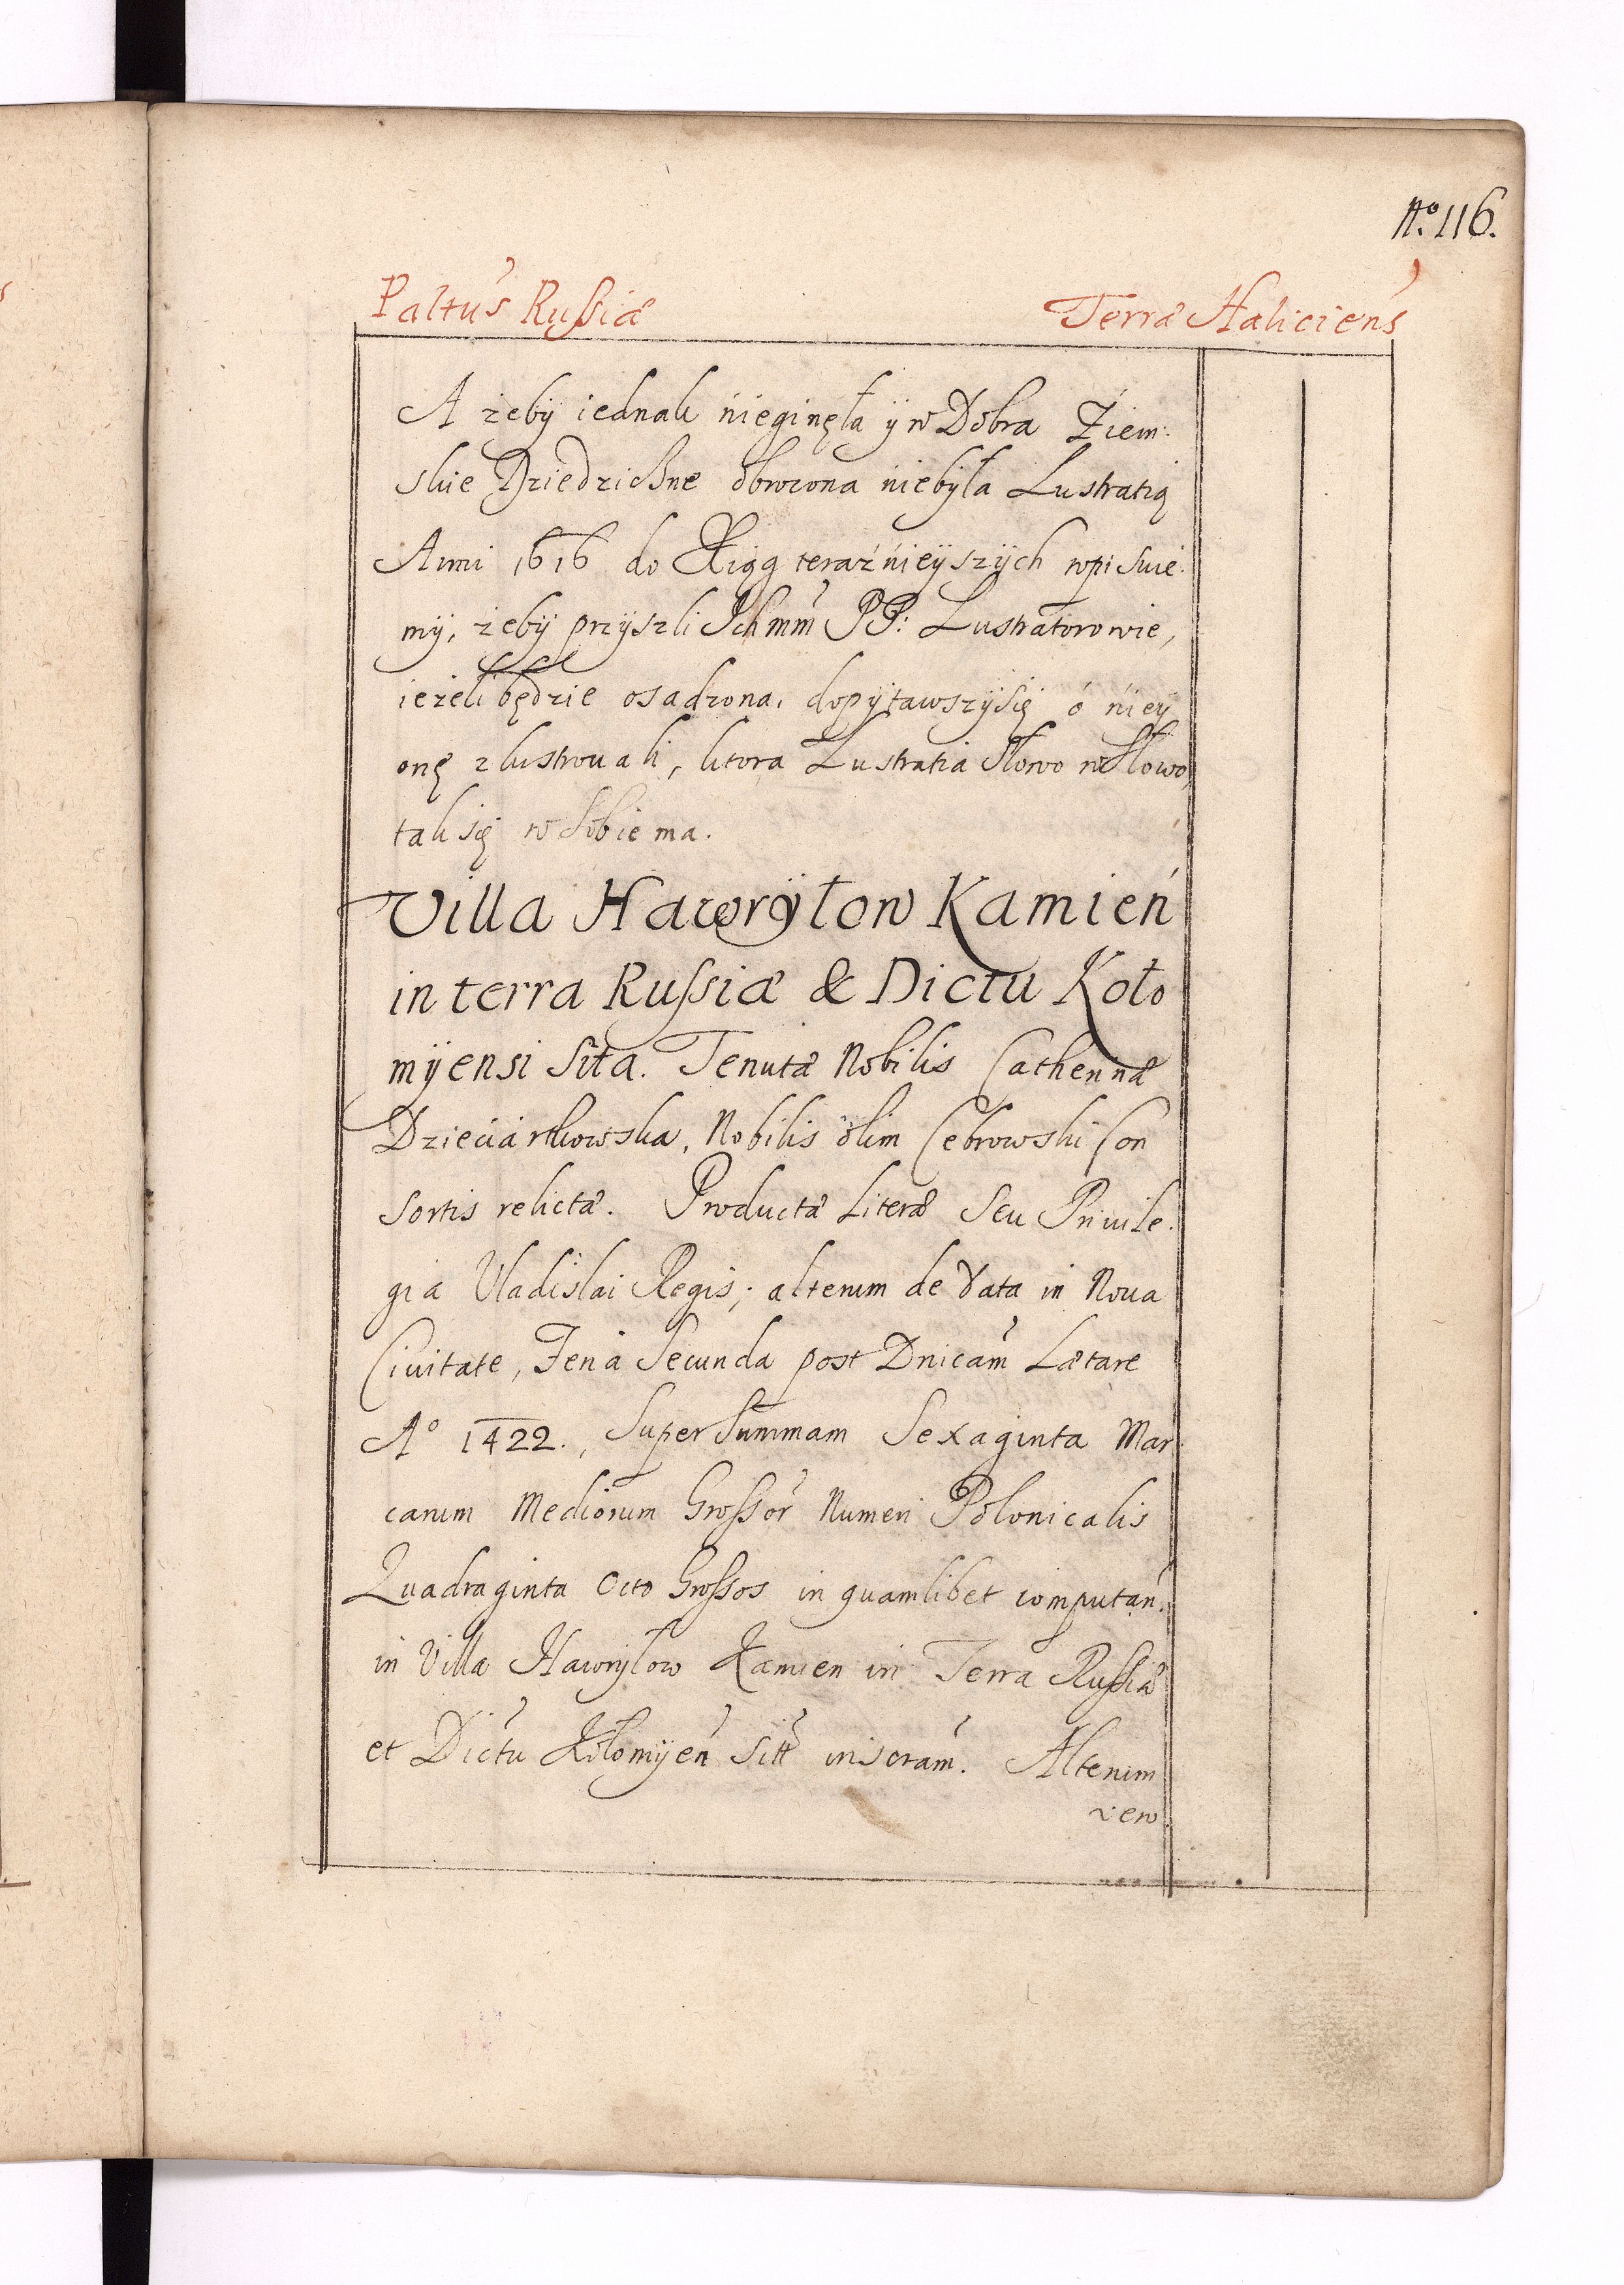 No. 116.
Paltus Russiæ Terræ Haliciens
A żeby iednak nieginęła y w Dobra Ziem.
skie Dziedziczne obrocona niebyła Lustratią
Anni 1616 do Xigg teraźnieyszych wpisuie.
my, żeby przyszli Ichmm PP: Lustratorowie,
ieżeli będzie osadzona, dopytawszysię o niey
onę zlustrouali, ktora Lustratia Słowo wSłowo,
tak się w Sobie ma.
Villa Hawryłow Kamień
in terra Russiæ & Dictu Koło
myensi Sita. Tenutæ Nobilis Catherinæ
Dzieciartkowska, Nobilis olim Cebrowski Con
sortis relictæ. Productæ Literæ Seu Priuile.
gia Vladislai Regis; alterum de data in Noua
Ciuitate, Feria Secunda post Dnicam Lætare
Aº 1422., Super Summam Sexaginta Mar
carum Mediorum Grossor Numeri Polonicalis
Quadraginta Octo Grossos in quamlibet computan.
in Villa Hawryłow Kamien in Terra Russiæ
et Dictu Kołomyen Sitt inscram. Alterum
vero.